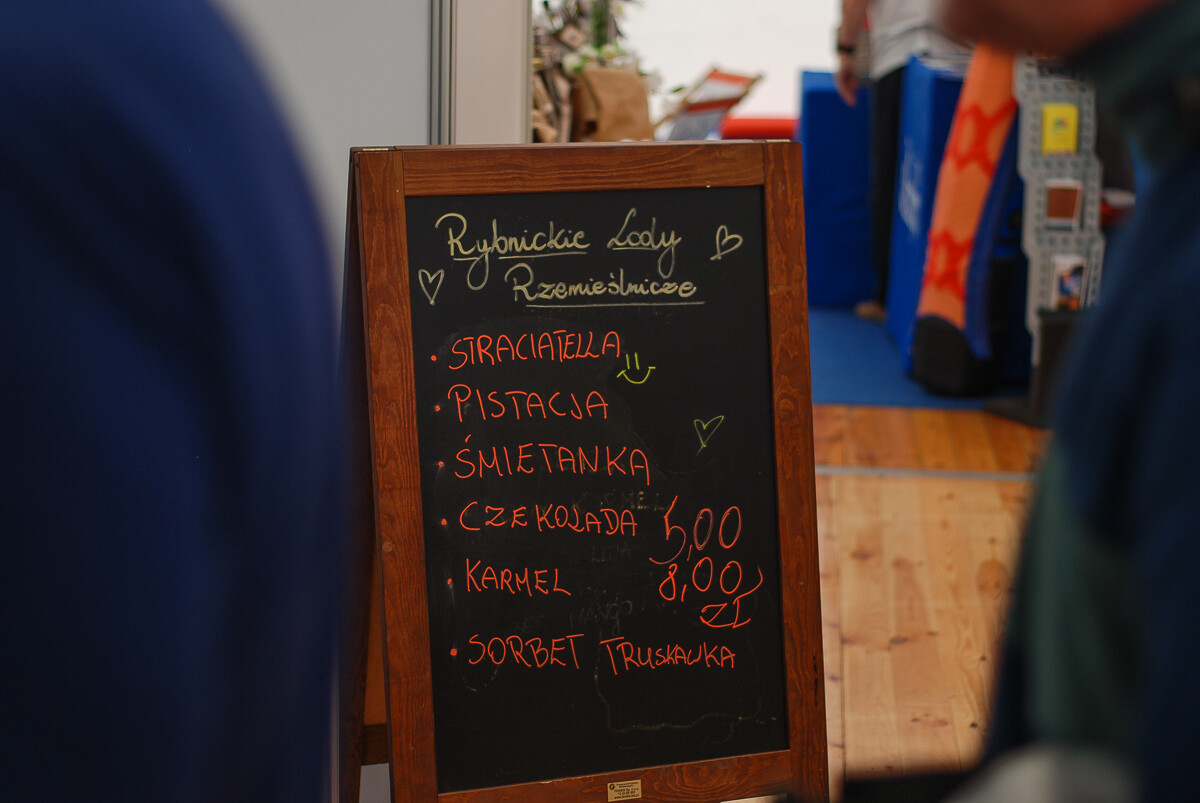 Rybnickie Lody
Rzemieślnicze
• STRACIATELLA
• PISTACJA
• ŚMIETANKA
• CZEKOLADA 5,00
• KARMEL 8,00
ZŁ
• SORBET TRUSKAWKA